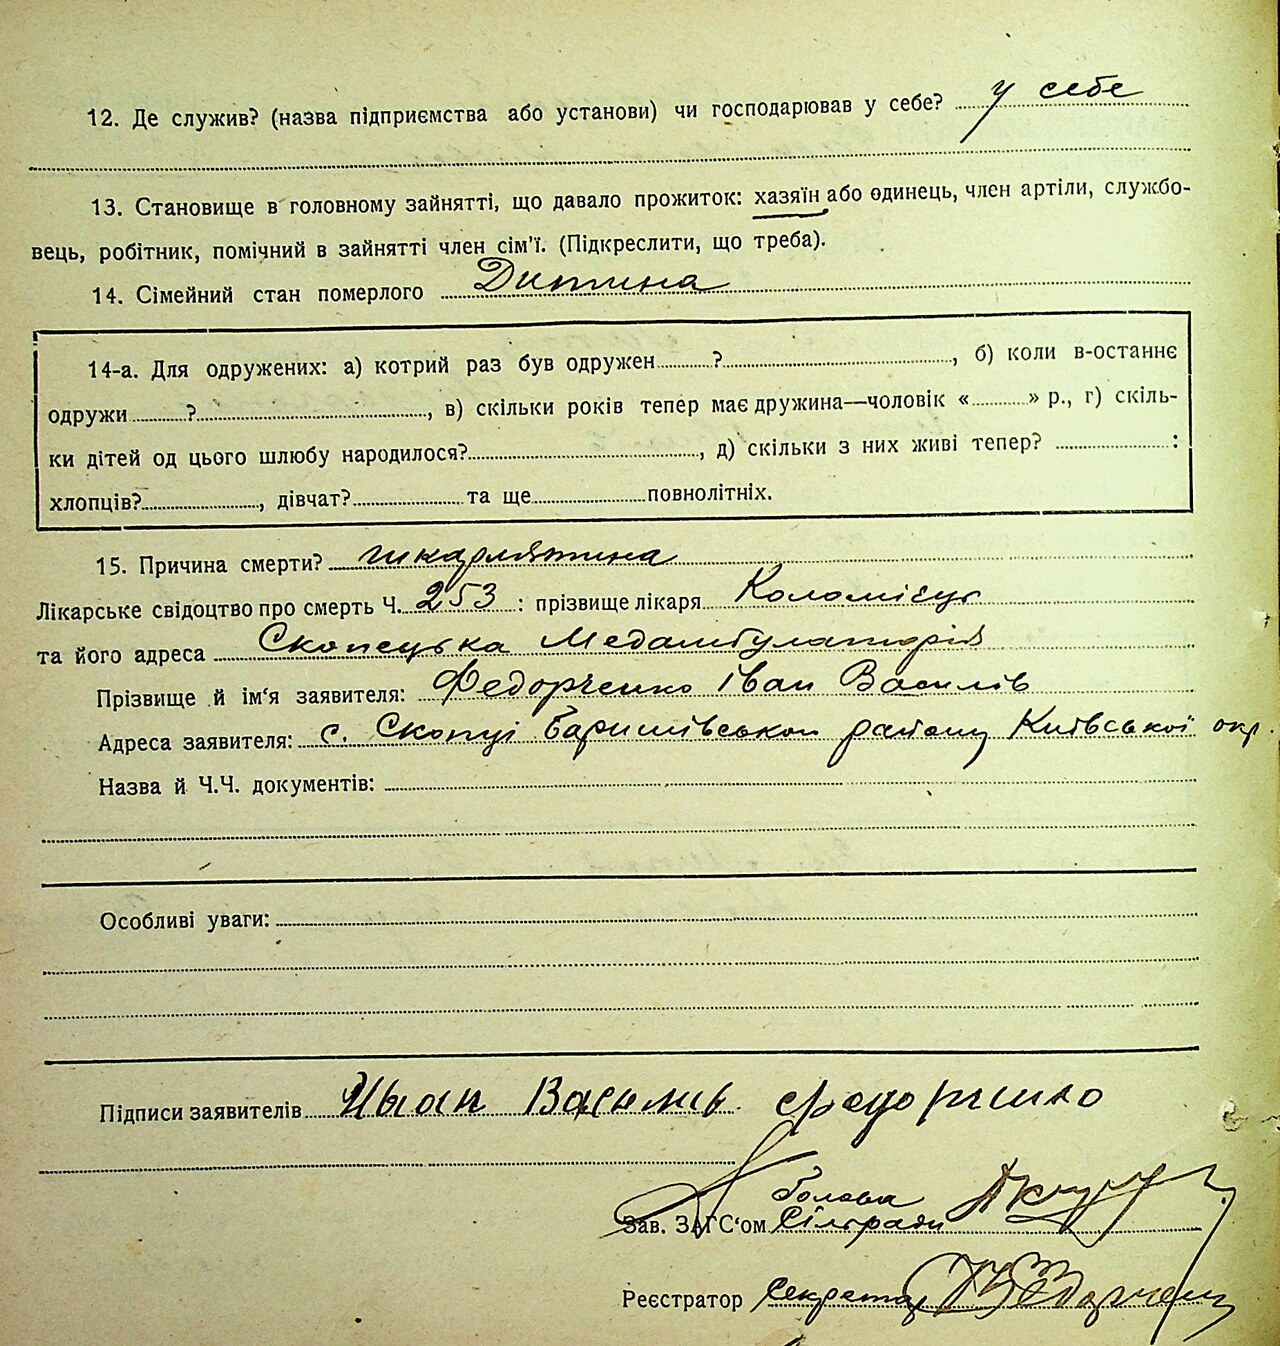 12. Де служив? (назва підприємства або установи) чи господарював у себе? у себе
13. Становище в головному зайнятті, що давало прожиток: хазяїн або одинець, член артілі, службо-
вець, робітник, помічний в зайнятті член сім'ї. (Підкреслити, що треба).
14. Сімейний стан померлого Дитина
14-а. Для одружених: а) котрий раз був одружен ? , б) коли в-останнє
одружи ? , в) скільки років тепер має дружина—чоловік « » р., г) скіль-
ки дітей од цього шлюбу народилося? , д) скільки з них живі тепер? :
хлопців? , дівчат? та ще повнолітніх.
15. Причина смерти? шкарлятина
Лікарське свідоцтво про смерть Ч. 253 : прізвище лікаря Коломієць
та його адреса Скопецька Медамбулаторія
Прізвище й ім'я заявителя: Федорченко Іван Василів
Адреса заявителя: с. Скопці Баришівської району Київської окр.
Назва й Ч.Ч. документів:
Особливі уваги:
Підписи заявителів Иван Василів Федорченко
Голова
Зав. ЗАГС'ом Сільради
Реєстратор Секретар